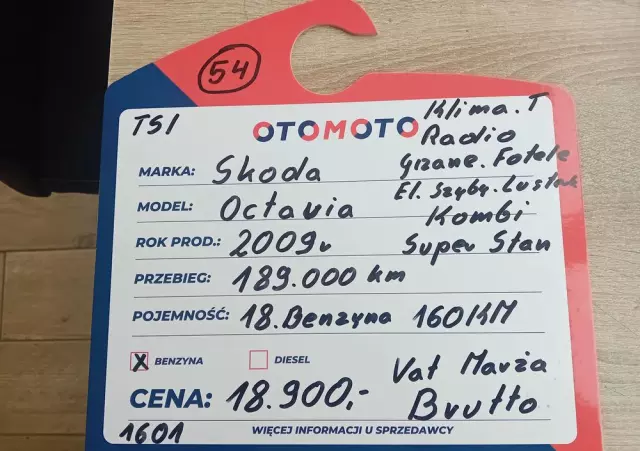 54
TSI
OTOMOTO
Klima. T
Radio
Grzane. Fotele
El. Szyby. Lustak
Kombi
Super Stan
MARKA: Skoda
MODEL: Octavia
ROK PROD.: 2009r
PRZEBIEG: 189.000 km
POJEMNOŚĆ: 18. Benzyna 160KM
X BENZYNA DIESEL
Vat Marża
Brutto
CENA: 18.900,-
1601
WIĘCEJ INFORMACJI U SPRZEDAWCY